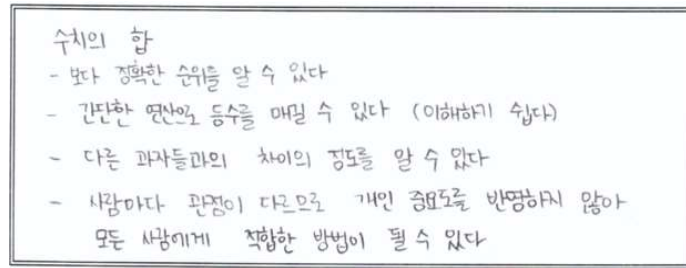 수치의 합
- 보다 정확한 순위를 알 수 있다
- 간단한 연산으로 등수를 매길 수 있다 (이해하기 쉽다)
- 다른 과자들과의 차이의 정도를 알 수 있다
- 사람마다 관점이 다르므로 개인 중요도를 반영하지 않아
모든 사람에게 적합한 방법이 될 수 있다